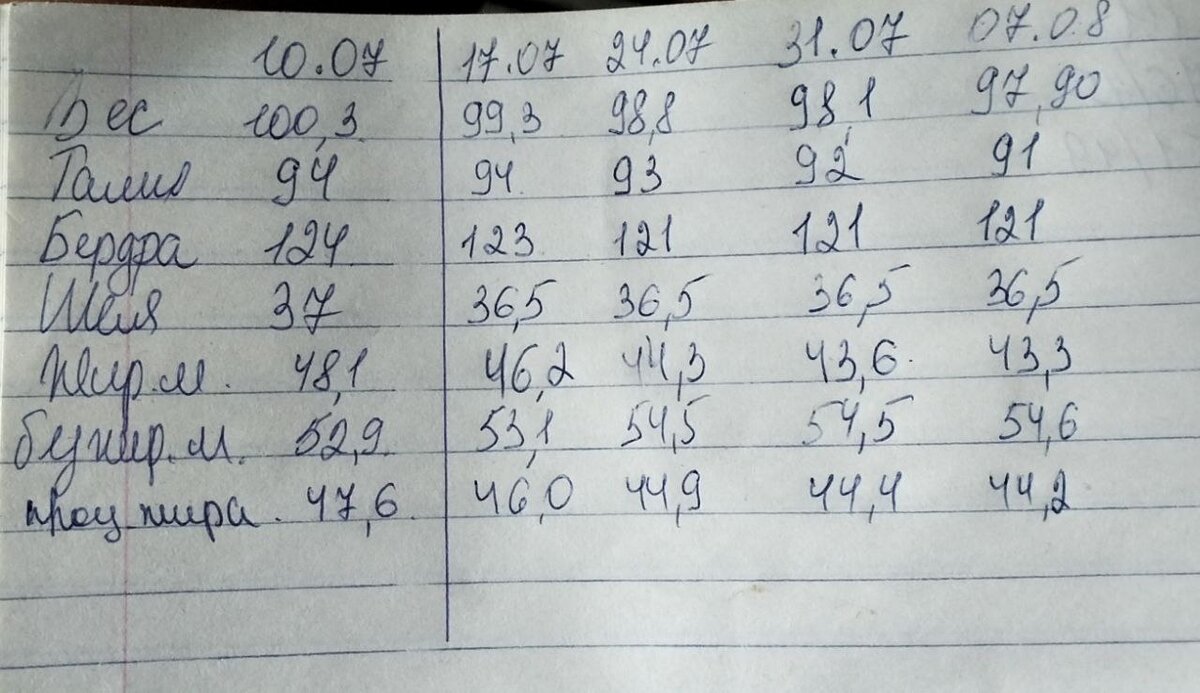 10.07 17.07 24.07 31.07 07.08
Вес 100,3 99,3 98,8 98,1 97,90
Талия 94 94 93 92 91
Бердра 124 123 121 121 121
Шея 37 36,5 36,5 36,5 36,5
Жир.м. 48,1 46,2 44,3 43,6 43,3
безжир.м. 52,9 53,1 54,5 54,5 54,6
проц жира. 47,6 46,0 44,9 44,4 44,2